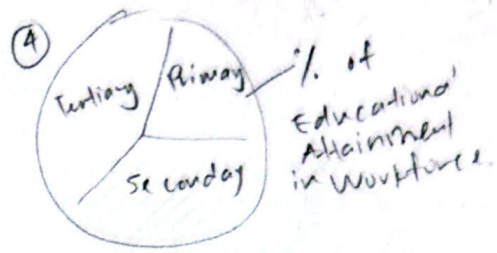 ④
Tertiary
Primary
Seconday
% of
Educational
Attainment
in Workforce.